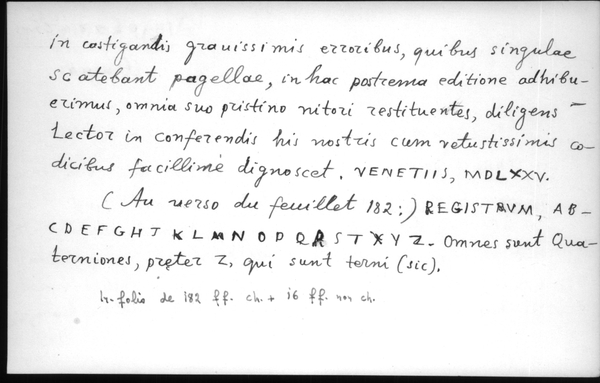 in castigandis grauissimis erroribus, quibus singulae
scatebant pagellae, in hac postrema editione adhibu-
erimus, omnia suo pristino nitori restituentes, diligens
Lector in conferendis his nostris cum vetustissimis co-
dicibus facillimè dignoscet. VENETIIS, MDLXXV.
(Au verso du feuillet 182:) REGISTRVM, AB-
CDEFGHIKLMNOPQRSTXYZ. Omnes sunt Qua-
terniones, pręter Z, qui sunt terni (sic).
In-folio de 182 ff. ch. + 16 ff. non ch.